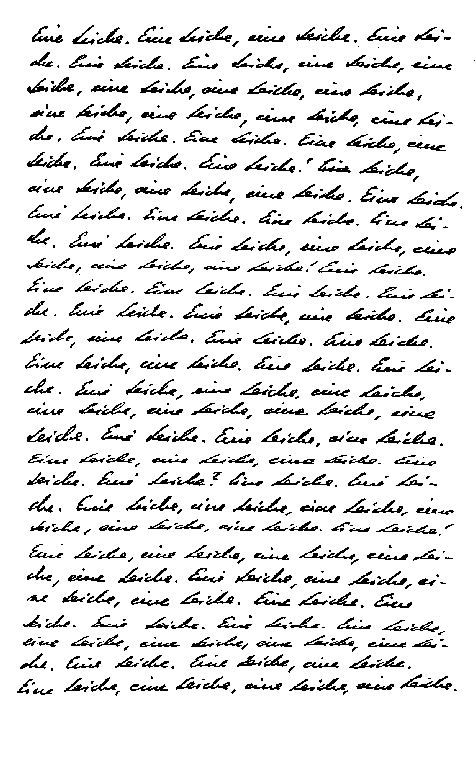 Eine Leiche. Eine Leiche, eine Leiche. Eine Lei-
che. Eine Leiche. Eine Leiche, eine Leiche, eine
Leiche, eine Leiche, eine Leiche, eine Leiche,
eine Leiche, eine Leiche, eine Leiche, eine Lei-
che. Eine Leiche. Eine Leiche. Eine Leiche, eine
Leiche. Eine Leiche. Eine Leiche! Eine Leiche,
eine Leiche, eine Leiche, eine Leiche. Eine Leiche.
Eine Leiche. Eine Leiche. Eine Leiche. Eine Lei-
che. Eine Leiche. Eine Leiche, eine Leiche, eine
Leiche, eine Leiche, eine Leiche! Eine Leiche.
Eine Leiche. Eine Leiche. Eine Leiche. Eine Lei-
che. Eine Leiche. Eine Leiche, eine Leiche. Eine
Leiche, eine Leiche. Eine Leiche. Eine Leiche.
Eine Leiche, eine Leiche. Eine Leiche. Eine Lei-
che. Eine Leiche, eine Leiche, eine Leiche,
eine Leiche, eine Leiche, eine Leiche, eine
Leiche. Eine Leiche. Eine Leiche, eine Leiche.
Eine Leiche, eine Leiche, eine Leiche. Eine
Leiche. Eine Leiche? Eine Leiche. Eine Lei-
che. Eine Leiche, eine Leiche, eine Leiche, eine
Leiche, eine Leiche, eine Leiche. Eine Leiche!
Eine Leiche, eine Leiche, eine Leiche, eine Lei-
che, eine Leiche. Eine Leiche, eine Leiche, ei-
ne Leiche, eine Leiche. Eine Leiche. Eine
Leiche. Eine Leiche. Eine Leiche. Eine Leiche,
eine Leiche, eine Leiche, eine Leiche, eine Lei-
che. Eine Leiche. Eine Leiche, eine Leiche.
Eine Leiche, eine Leiche, eine Leiche, eine Leiche.